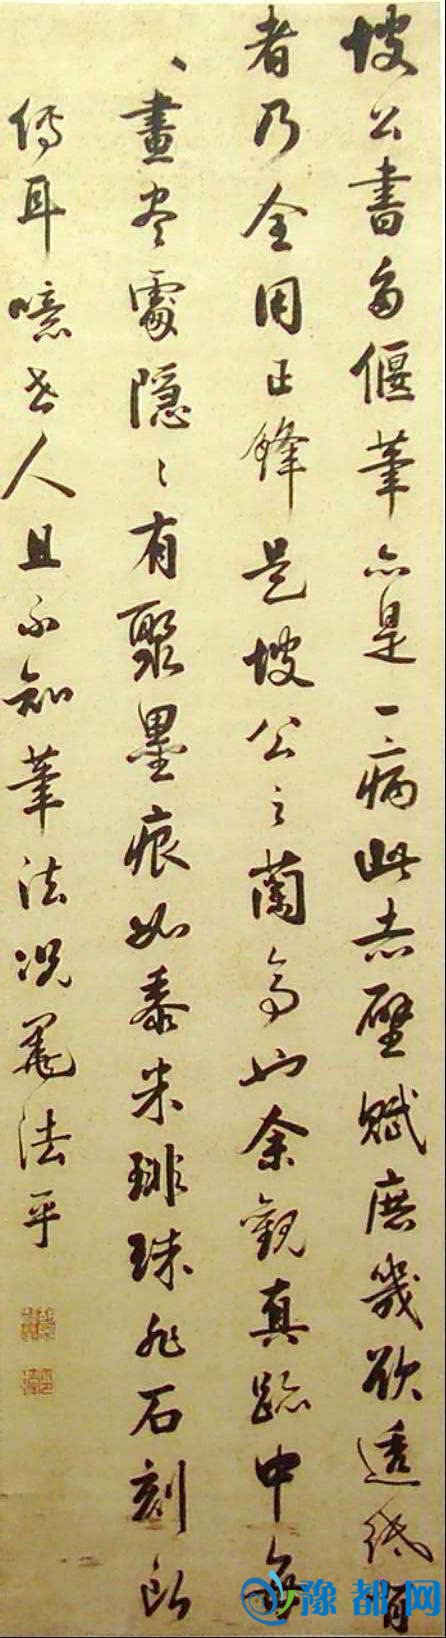 坡公書多偃筆亦是一病此赤壁賦庶幾欲透紙背
者乃全用正鋒是坡公之蘭亭也余觀真跡中每
丶畫尽處隱〻有聚墨痕如黍米琲珠非石刻所
傳耳噫世人且不知筆法況墨法乎
豫都网